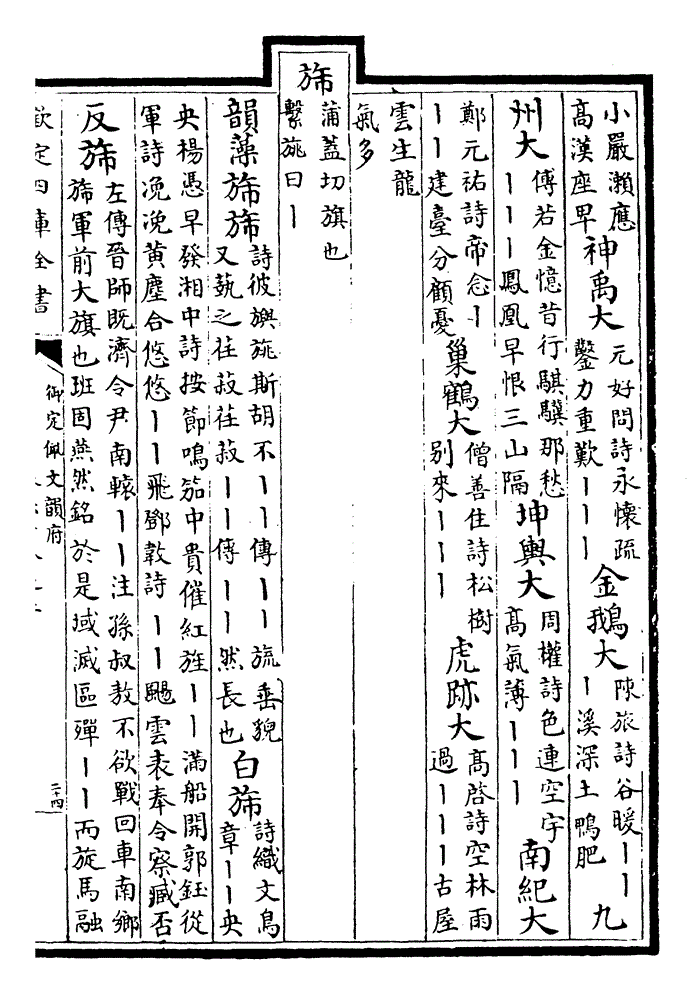 小嚴瀨應髙漢座早神禹大元好問詩永懷疏鑿力重歎丨丨丨金鵝大陳旅詩谷暖丨丨丨溪深土鴨肥九
州大傅若金憶昔行騏驥那愁丨丨丨鳳凰早恨三山隔坤輿大周權詩色連空宇髙氣薄丨丨丨南紀大
鄭元祐詩帝念丨丨丨建臺分顧憂巢鶴大僧善住詩松樹别來丨丨丨虎跡大髙啓詩空林雨過丨丨丨古屋
雲生龍氣多
旆蒲蓋切旗也繫旐曰丨
韻藻旆旆詩彼旟旐斯胡不丨丨傳丨丨旒垂貌又蓺之荏菽荏菽丨丨傳丨丨然長也白旆詩織文鳥章丨丨央
央楊憑早發湘中詩按節鳴笳中貴催紅旌丨丨滿船開郭鈺從軍詩浼浼黄塵合悠悠丨丨飛鄧詩丨丨颺雲表奉令察臧否
反旆左傳晉師既濟令尹南轅丨丨注孫叔敖不欲戰回車南鄉旆軍前大旗也班固燕然銘於是域滅區殫丨丨而旋馬融
欽定四庫全書
御定佩文韻府
二十四